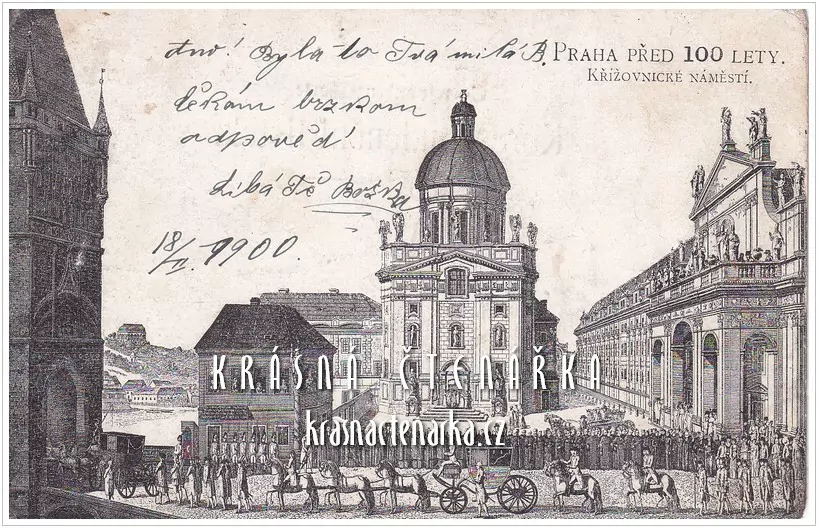 Ano! Byla to Tvá milá B.
PRAHA PŘED 100 LETY.
KŘIŽOVNICKÉ NÁMĚSTÍ.
čekám brzkou
odpověď
líbá Tě Božka
18/II 1900.
KRÁSNÁ ČTENÁŘKA
krasnactenarka.cz